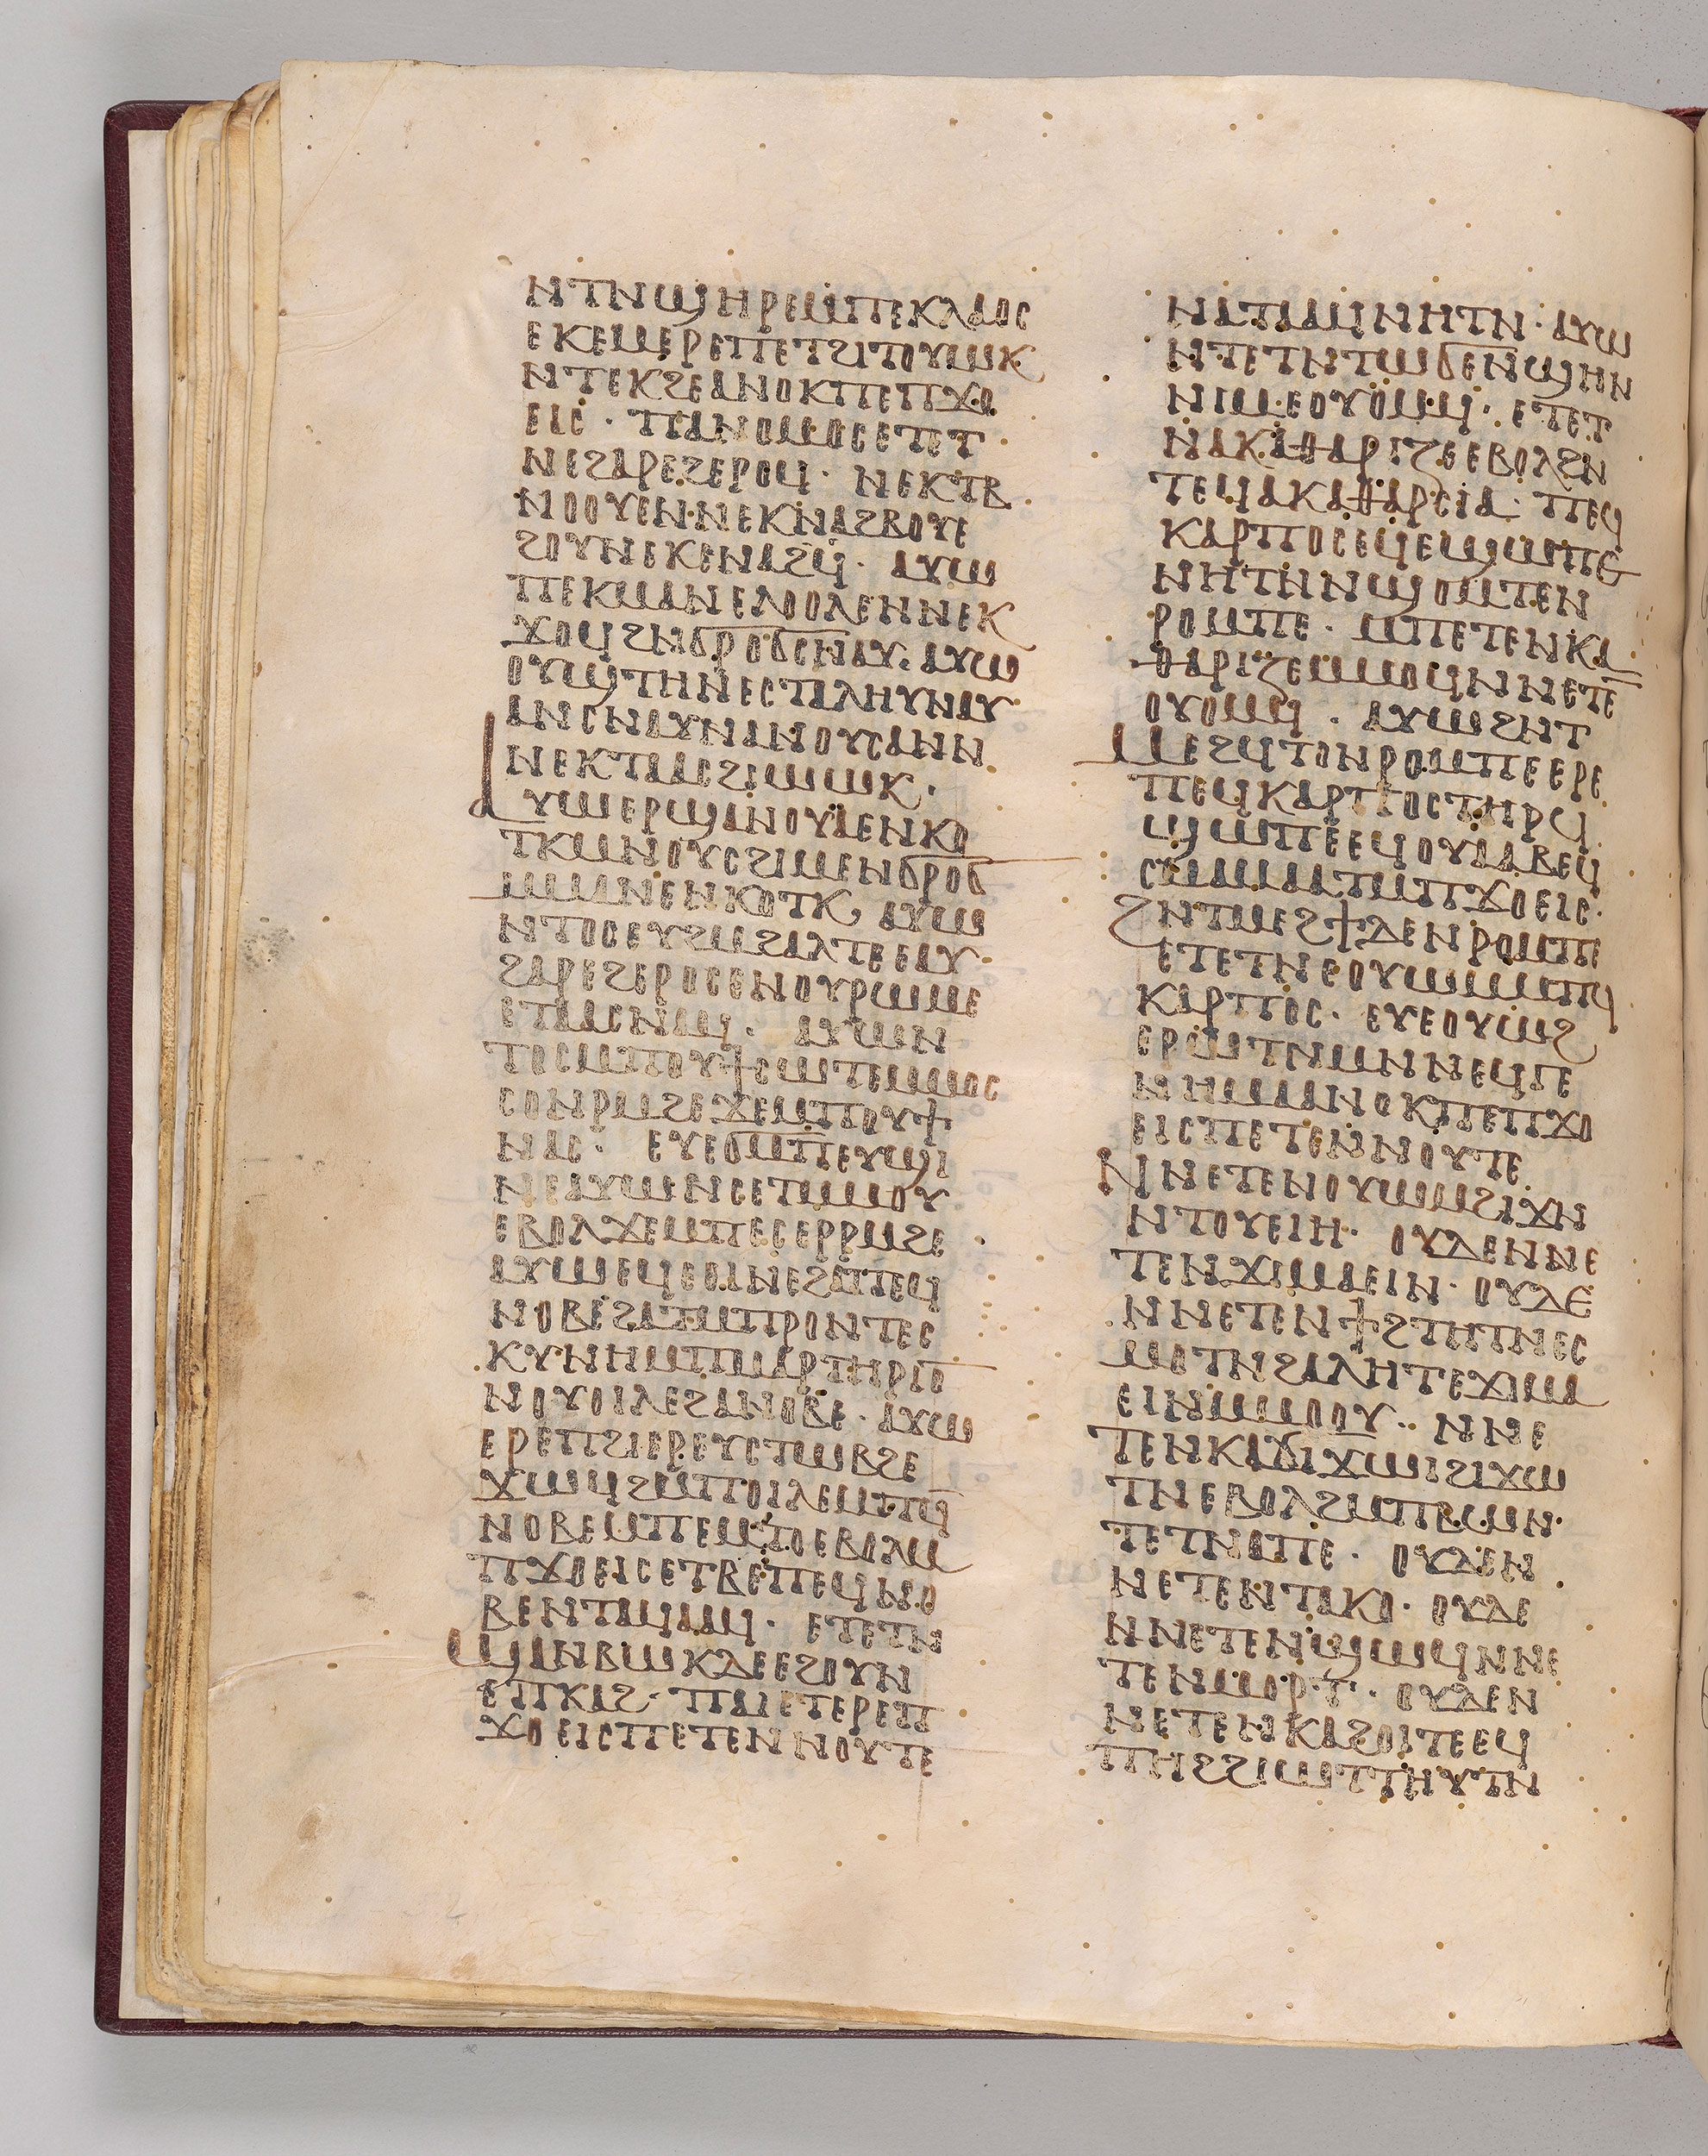 ⲛⲧⲛϣⲏⲣⲉⲙⲡⲉⲕⲗⲁⲟⲥ
ⲉⲕⲉⲙⲉⲣⲉⲡⲉⲧϩⲓⲧⲟⲩⲱⲕ
ⲛⲧⲉⲕϩⲉⲁⲛⲟⲕⲡⲉⲡϫⲟ
ⲉⲓⲥ · ⲡⲁⲛⲟⲙⲟⲥⲉⲧⲉⲧ
ⲛⲉϩⲁⲣⲉϩⲉⲣⲟϥ · ⲛⲉⲕⲧⲃ
ⲛⲟⲟⲩⲉⲛⲛⲉⲕⲛⲁϩⲃⲟⲩⲉ
ϩⲟⲩⲛⲉⲕⲉⲛⲁϩϥ · ⲁⲩⲱ
ⲡⲉⲕⲙⲁⲛⲉⲗⲟⲟⲗⲉⲛⲛⲉⲕ
ϫⲟϥϩⲛϭⲣⲟϭⲥⲛⲁⲩ · ⲁⲩⲱ
ⲟⲩϣⲧⲏⲛⲉⲥⲧⲁⲗⲏⲩⲛⲁⲩ
ⲁⲛⲥⲛⲁⲩⲛⲁⲛⲟⲩⲥⲁⲛⲛ
ⲛⲉⲕⲧⲁⲁⲥϩⲓⲱⲱⲕ ·
ⲁⲩⲱⲉⲣϣⲁⲛⲟⲩⲁⲉⲛⲕⲟ
ⲧⲕⲙⲛⲟⲩⲥϩⲓⲙⲉⲛϭⲣⲟϭ
ⲙⲙⲁⲛⲉⲛⲕⲟⲧⲕ ⲁⲩⲱ
ⲛⲧⲟⲥⲉⲩϩⲙϩⲁⲗⲧⲉⲉⲁⲩ
ϩⲁⲣⲉϩⲉⲣⲟⲥⲉⲛⲟⲩⲣⲱⲙⲉ
ⲉⲧⲁⲁⲥⲛⲁϥ · ⲁⲩⲱⲛ
ⲧⲟⲥⲙⲡⲟⲩϯⲥⲱⲧⲉⲙⲙⲟⲥ
ⲥⲟⲛⲣⲙϩⲉϫⲉⲙⲡⲟⲩϯ
ⲛⲁⲥ · ⲉⲩⲉϭⲙⲡⲉⲩϣⲓ
ⲛⲉⲁⲩⲱⲛⲥⲉⲧⲙⲙⲟⲩ
ⲉⲃⲟⲗϫⲉⲙⲡⲉⲥⲉⲣⲣⲙϩⲉ
ⲁⲩⲱⲉϥⲉⲟⲓⲛⲉϩⲁⲡⲉϥ
ⲛⲟⲃⲉϩⲁⲧⲙⲡⲣⲟⲛⲧⲉⲥ
ⲕⲩⲛⲏⲙⲡⲙⲁⲣⲧⲏⲣⲓⲟ
ⲛⲟⲩⲟⲓⲗⲉϩⲁⲛⲟⲃⲉ · ⲁⲩⲱ
ⲉⲣⲉⲡϩⲓⲉⲣⲉⲩⲥⲧⲱⲃϩⲉ
ϫⲱϥϩⲙⲡⲟⲓⲗⲉⲙⲡϥ
ⲛⲟⲃⲉⲙⲡⲉⲙⲧⲟⲉⲃⲟⲗⲙ
ⲡϫⲟⲉⲓⲥⲉⲧⲃⲉⲡⲉϥⲛⲟ
ⲃⲉⲛⲧⲁϥⲁⲁϥ · ⲉⲧⲉⲧⲛ
ϣⲁⲛⲃⲱⲕⲇⲉⲉϩⲟⲩⲛ
ⲉⲡⲕⲁϩ · ⲡⲁⲓⲉⲧⲉⲣⲉⲡ
ϫⲟⲉⲓⲥⲡⲉⲧⲉⲛⲛⲟⲩⲧⲉ
ⲛⲁⲧⲁⲁϥⲛⲏⲧⲛ · ⲁⲩⲱ
ⲛⲧⲉⲧⲛⲧⲱϭⲉⲛϣⲏⲛ
ⲛⲓⲙ·ⲉⲟⲩⲟⲙϥ · ⲉⲧⲉⲧ
ⲛⲁⲕⲁⲑⲁⲣⲓⲍⲉⲉⲃⲟⲗϩⲛ
ⲧⲉϥⲁⲕⲁⲑⲁⲣⲥⲓⲁ · ⲡⲉϥ
ⲕⲁⲣⲡⲟⲥⲉϥⲉϣⲱⲡⲉ
ⲛⲏⲧⲛⲛϣⲟⲙⲧⲉⲛ
ⲣⲟⲙⲡⲉ · ⲙⲡⲉⲧⲉⲛⲕⲁ
ⲑⲁⲣⲓⲍⲉⲙⲙⲟϥⲛⲛⲉⲧⲉ
ⲟⲩⲟⲙϥ · ⲁⲩⲱϩⲛⲧ
ⲙⲉϩϥⲧⲟⲛⲣⲟⲙⲡⲉⲉⲣⲉ
ⲡⲉϥⲕⲁⲣⲡⲟⲥⲧⲏⲣϥ
ϣⲱⲡⲉⲉϥⲟⲩⲁⲁⲃⲉϥ
ⲥⲙⲁⲙⲁⲁⲧⲙⲡϫⲟⲉⲓⲥ ·
ϩⲛⲧⲙⲉϩϯⲇⲉⲛⲣⲟⲙⲡⲉ
ⲉⲧⲉⲧⲛⲉⲟⲩⲱⲙⲙⲡϥ
ⲕⲁⲣⲡⲟⲥ · ⲉⲩⲉⲟⲩⲱϩ
ⲉⲣⲱⲧⲛⲙⲛⲛⲉϥⲅⲉ
ⲛⲏⲙⲁⲁⲛⲟⲕⲡⲉⲡϫⲟ
ⲉⲓⲥⲡⲉⲧⲉⲛⲛⲟⲩⲧⲉ
ⲛⲛⲉⲧⲉⲛⲟⲩⲱⲙϩⲓϫⲛ
ⲛⲧⲟⲩⲉⲓⲏ · ⲟⲩⲇⲉⲛⲛⲉ
ⲧⲉⲛϫⲓⲙⲁⲉⲓⲛ · ⲟⲩⲇⲉ
ⲛⲛⲉⲧⲉⲛϯϩⲧⲏⲧⲛⲉⲥ
ⲙⲟⲧⲛϩⲁⲗⲏⲧⲉϫⲓⲙⲁ
ⲉⲓⲛⲙⲙⲟⲟⲩ · ⲛⲛⲉ
ⲧⲉⲛⲕⲁϭⲓϫⲱⲓϩⲓϫⲱ
ⲧⲛⲉⲃⲟⲗϩⲙⲡⲃⲱⲛ
ⲧⲉⲧⲛⲁⲡⲉ · ⲟⲩⲇⲉⲛ
ⲛⲉⲧⲉⲛⲧⲁⲕⲟ · ⲟⲩⲇⲉ
ⲛⲛⲉⲧⲉⲛϣⲱϥⲛⲛⲉ
ⲧⲉⲛⲙⲟⲣⲧ · ⲟⲩⲇⲉⲛ
ⲛⲉⲧⲉⲛⲕⲁϩⲟⲓⲧⲉⲉϥ
ⲡⲏϩϩⲓⲱⲧⲧⲏⲩⲧⲛ